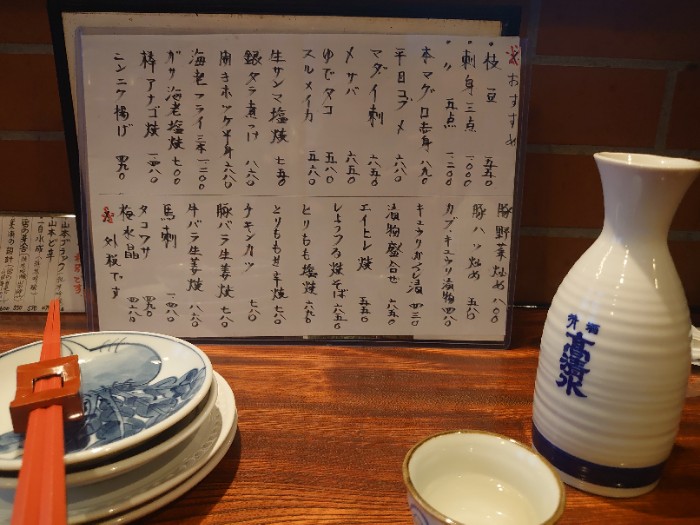 ※おすすめ
・枝豆 五五〇
・刺身 三点 一.〇〇〇
・〃 五点 一.二〇〇
本マグロ赤身 八九〇
平目コブ〆 六八〇
マダイ刺 六五〇
〆サバ 六五〇
ゆでタコ 五八〇
スルメイカ 五六〇
生サンマ塩焼 七五〇
銀ダラ煮つけ 八六〇
開きホッケ半身 六八〇
海老フライ三本 一二〇〇
ガサ海老塩焼 七〇〇
棒アナゴ焼
ニンニク揚げ 四九〇
豚野菜炒め 八〇〇
豚ハツ炒め 五八〇
カブ・キュウリ漬物 四八〇
キュウリからし漬 四三〇
漬物盛合せ 六五〇
エイヒレ焼 五五〇
焼そば 六五〇
とりもも塩焼 六九〇
とりもも 辛焼 七八〇
チキンカツ 七八〇
豚バラ生姜焼 六八〇
牛バラ生姜焼 八六〇
馬刺 一四八〇
タコワサ 四九〇
梅水晶 四八〇
※外税です
山本ブラック
清酒
高清水